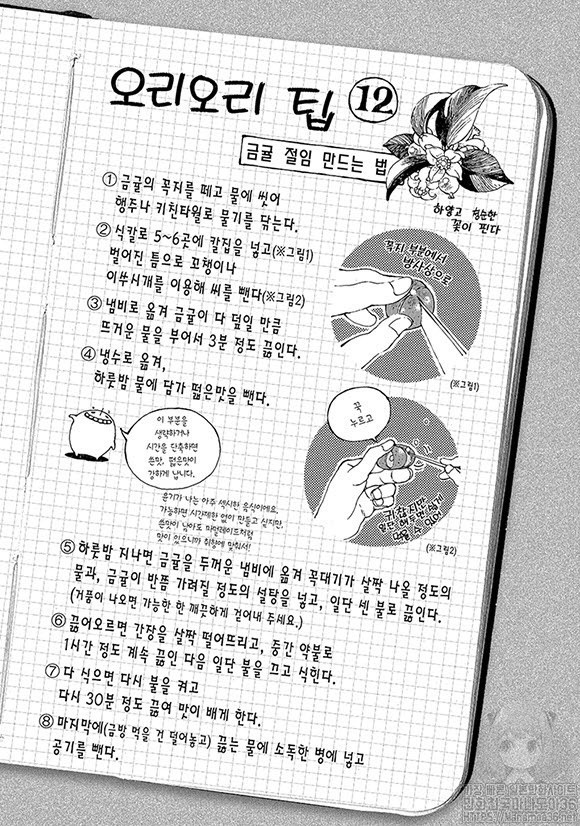 오리오리 팁 ⑫
금귤 절임 만드는 법
하얗고 청순한
꽃이 핀다
① 금귤의 꼭지를 떼고 물에 씻어
행주나 키친타월로 물기를 닦는다.
② 식칼로 5~6곳에 칼집을 넣고(※그림1)
벌어진 틈으로 꼬챙이나
이쑤시개를 이용해 씨를 뺀다(※그림2)
③ 냄비로 옮겨 금귤이 다 덮일 만큼
뜨거운 물을 부어서 3분 정도 끓인다.
④ 냉수로 옮겨,
하룻밤 물에 담가 떫은맛을 뺀다.
꼭지 부분에서
방사상으로
(※그림1)
꾹
누르고
귀찮지만
일단 해두면 쉽게
먹을 수 있어
(※그림2)
이 부분을
생략하거나
시간을 단축하면
쓴맛, 떫은맛이
강하게 납니다.
윤기가 나는 아주 섹시한 음식이에요.
가능하면 시간제한 없이 만들고 싶지만,
쓴맛이 남아도 마멀레이드처럼
맛이 있으니까 취향에 맞춰서!
⑤ 하룻밤 지나면 금귤을 두꺼운 냄비에 옮겨 꼭대기가 살짝 나올 정도의
물과, 금귤이 반쯤 가려질 정도의 설탕을 넣고, 일단 센 불로 끓인다.
(거품이 나오면 가능한 한 깨끗하게 걷어내 주세요.)
⑥ 끓어오르면 간장을 살짝 떨어뜨리고, 중간 약불로
1시간 정도 계속 끓인 다음 일단 불을 끄고 식힌다.
⑦ 다 식으면 다시 불을 켜고
다시 30분 정도 끓여 맛이 배게 한다.
⑧ 마지막에(금방 먹을 건 덜어놓고) 끓는 물에 소독한 병에 넣고
공기를 뺀다.
가장 빠른 일본만화사이트
만화천국마나모아36
HTTPS://Manamoa36.net